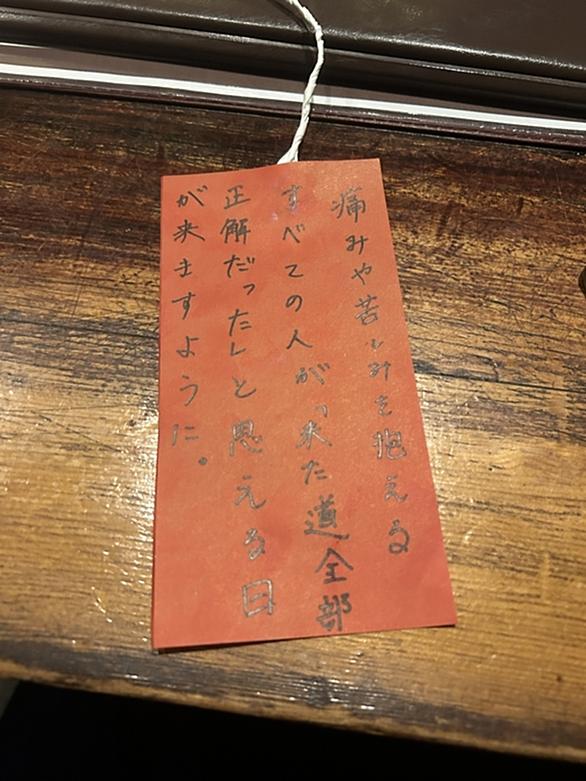 痛みや苦しみを抱える
すべての人が「来た道全部
正解だった」と思える日
が来ますように。